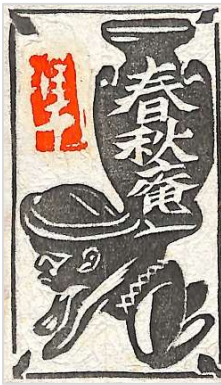 春秋庵